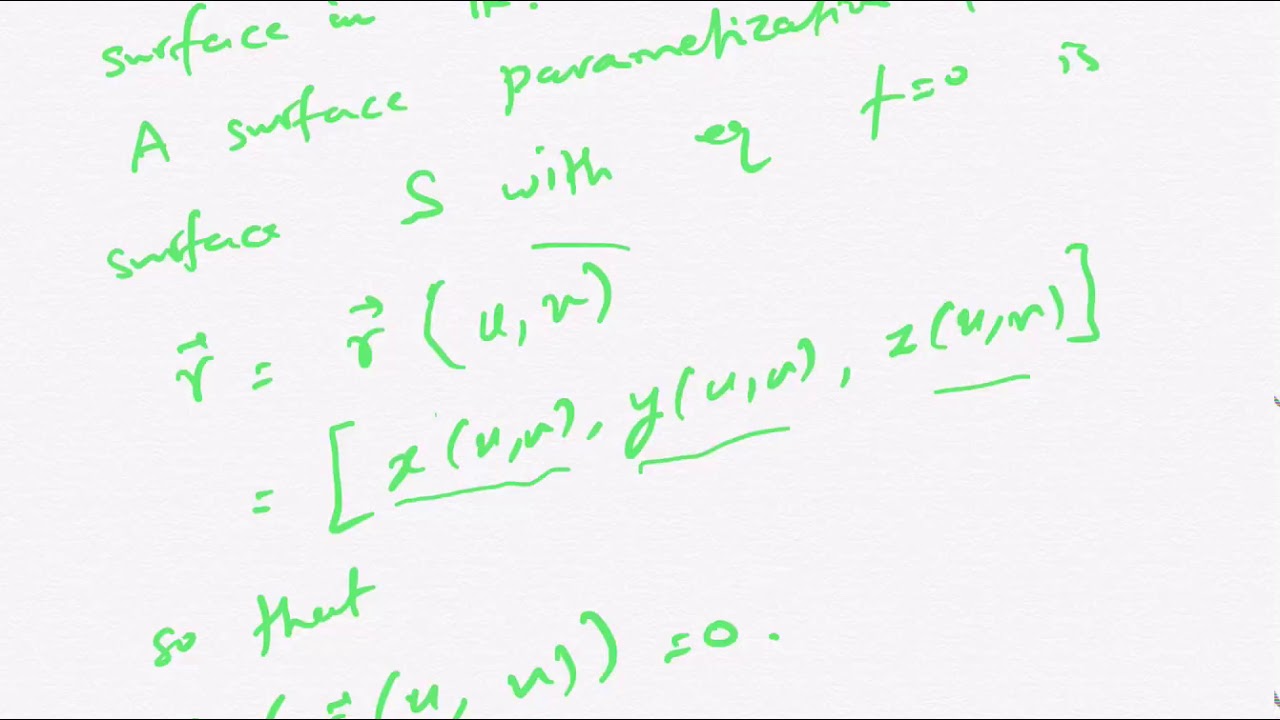 surface in
A surface parametization
surface S with eq f=0 is
r⃗ = r⃗ (u,v)
= [x(u,v), y(u,v), z(u,v)]
so that
(r⃗(u, v)) =0.